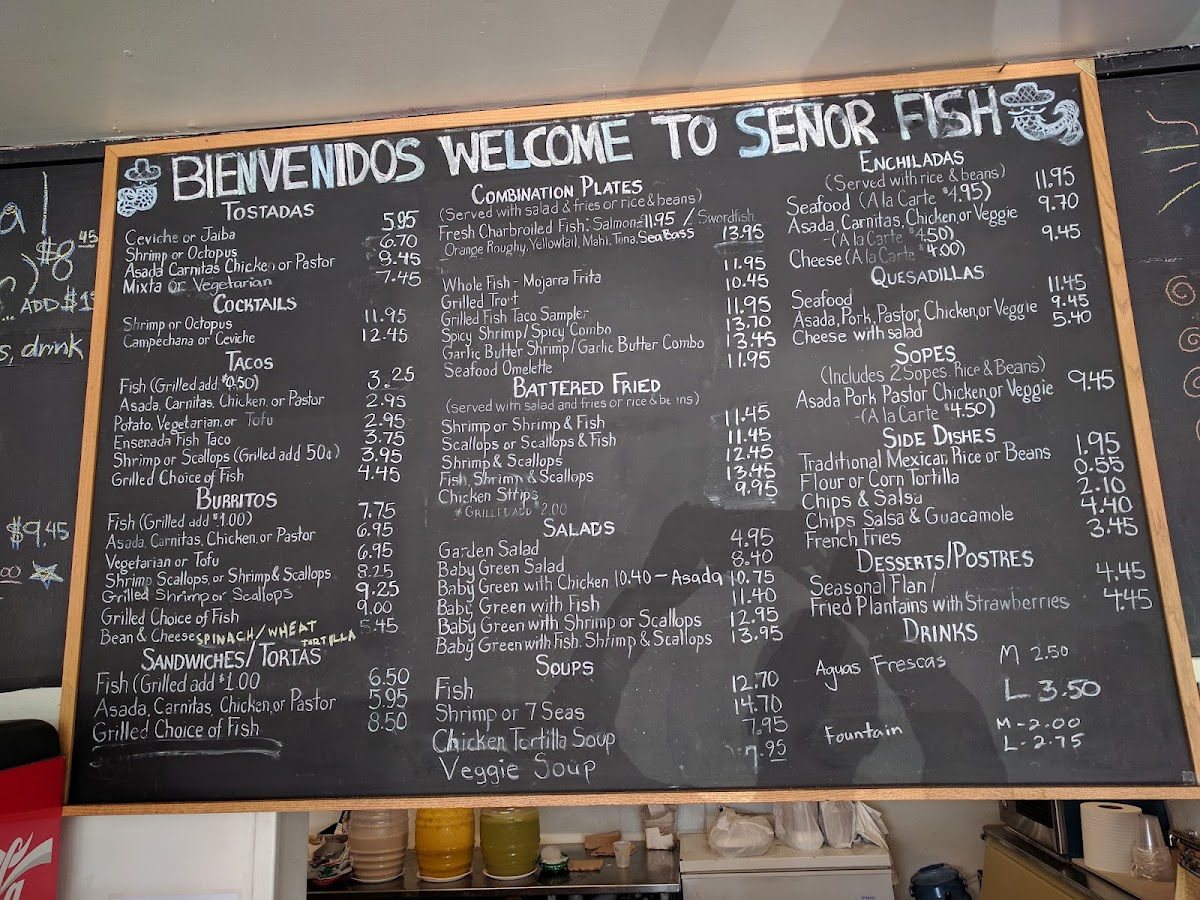 BIENVENIDOS WELCOME TO SEÑOR FISH
TOSTADAS
Ceviche or Jaiba 5.95
Shrimp or Octopus 6.70
Asada Carnitas Chicken or Pastor 8.45
Mixta or Vegetarian 7.45
COCKTAILS
Shrimp or Octopus 11.95
Campechana or Ceviche 12.45
TACOS
Fish (Grilled add $0.50) 3.25
Asada, Carnitas, Chicken, or Pastor 2.95
Potato, Vegetarian, or Tofu 2.95
Ensenada Fish Taco 3.75
Shrimp or Scallops (Grilled add 50¢) 3.95
Grilled Choice of Fish 4.45
BURRITOS
Fish (Grilled add $1.00) 7.75
Asada, Carnitas, Chicken, or Pastor 6.95
Vegetarian or Tofu 6.95
Shrimp Scallops, or Shrimp & Scallops 8.25
Grilled Shrimp or Scallops 9.25
Grilled Choice of Fish 9.00
Bean & Cheese SPINACH/WHEAT TORTILLA 5.45
SANDWICHES/TORTAS
Fish (Grilled add $1.00 6.50
Asada, Carnitas, Chicken, or Pastor 5.95
Grilled Choice of Fish 8.50
COMBINATION PLATES
(Served with salad & fries or rice & beans)
Fresh Charbroiled Fish: Salmon-11.95 / Swordfish
Orange Roughy, Yellowtail, Mahi, Tuna, Sea Bass 13.95
Whole Fish - Mojarra Frita 11.95
Grilled Trout 10.45
Grilled Fish Taco Sampler 11.95
Spicy Shrimp/Spicy Combo 13.70
Garlic Butter Shrimp/Garlic Butter Combo 13.45
Seafood Omelette 11.95
BATTERED FRIED
(Served with salad and fries or rice & beans)
Shrimp or Shrimp & Fish 11.45
Scallops or Scallops & Fish 11.45
Shrimp & Scallops 12.45
Fish, Shrimp & Scallops 13.45
Chicken Strips 9.95
*GRILLED ADD $2.00
SALADS
Garden Salad 4.95
Baby Green Salad 8.40
Baby Green with Chicken 10.40 – Asada 10.75
Baby Green with Fish 11.40
Baby Green with Shrimp or Scallops 12.95
Baby Green with Fish, Shrimp & Scallops 13.95
SOUPS
Fish 12.70
Shrimp or 7 Seas 14.70
Chicken Tortilla Soup 7.95
Veggie Soup 7.95
ENCHILADAS
(Served with rice & beans)
Seafood (A la Carte $4.95) 11.95
Asada, Carnitas, Chicken, or Veggie 9.70
-(A la Carte $4.50)
Cheese (A la Carte $4.00) 9.45
QUESADILLAS
Seafood 11.45
Asada, Pork, Pastor, Chicken, or Veggie 9.45
Cheese with salad 5.40
SOPES
(Includes 2 Sopes, Rice & Beans)
Asada Pork Pastor Chicken or Veggie 9.45
-(A la Carte $4.50)
SIDE DISHES
Traditional Mexican Rice or Beans 1.95
Flour or Corn Tortilla 0.55
Chips & Salsa 2.10
Chips Salsa & Guacamole 4.40
French Fries 3.45
DESSERTS/POSTRES
Seasonal Flan / 4.45
Fried Plantains with Strawberries 4.45
DRINKS
Aguas Frescas M 2.50
L 3.50
Fountain M - 2.00
L - 2.75
$8.45
ADD $1
s, drink
$9.45